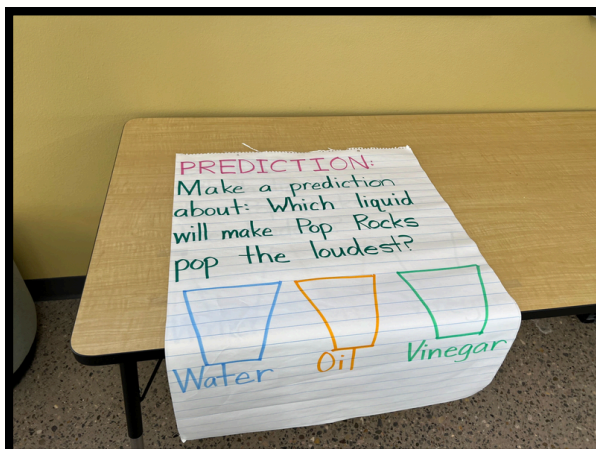 PREDICTION:
Make a prediction
about: Which liquid
will make Pop Rocks
pop the loudest?
Water Oil Vinegar